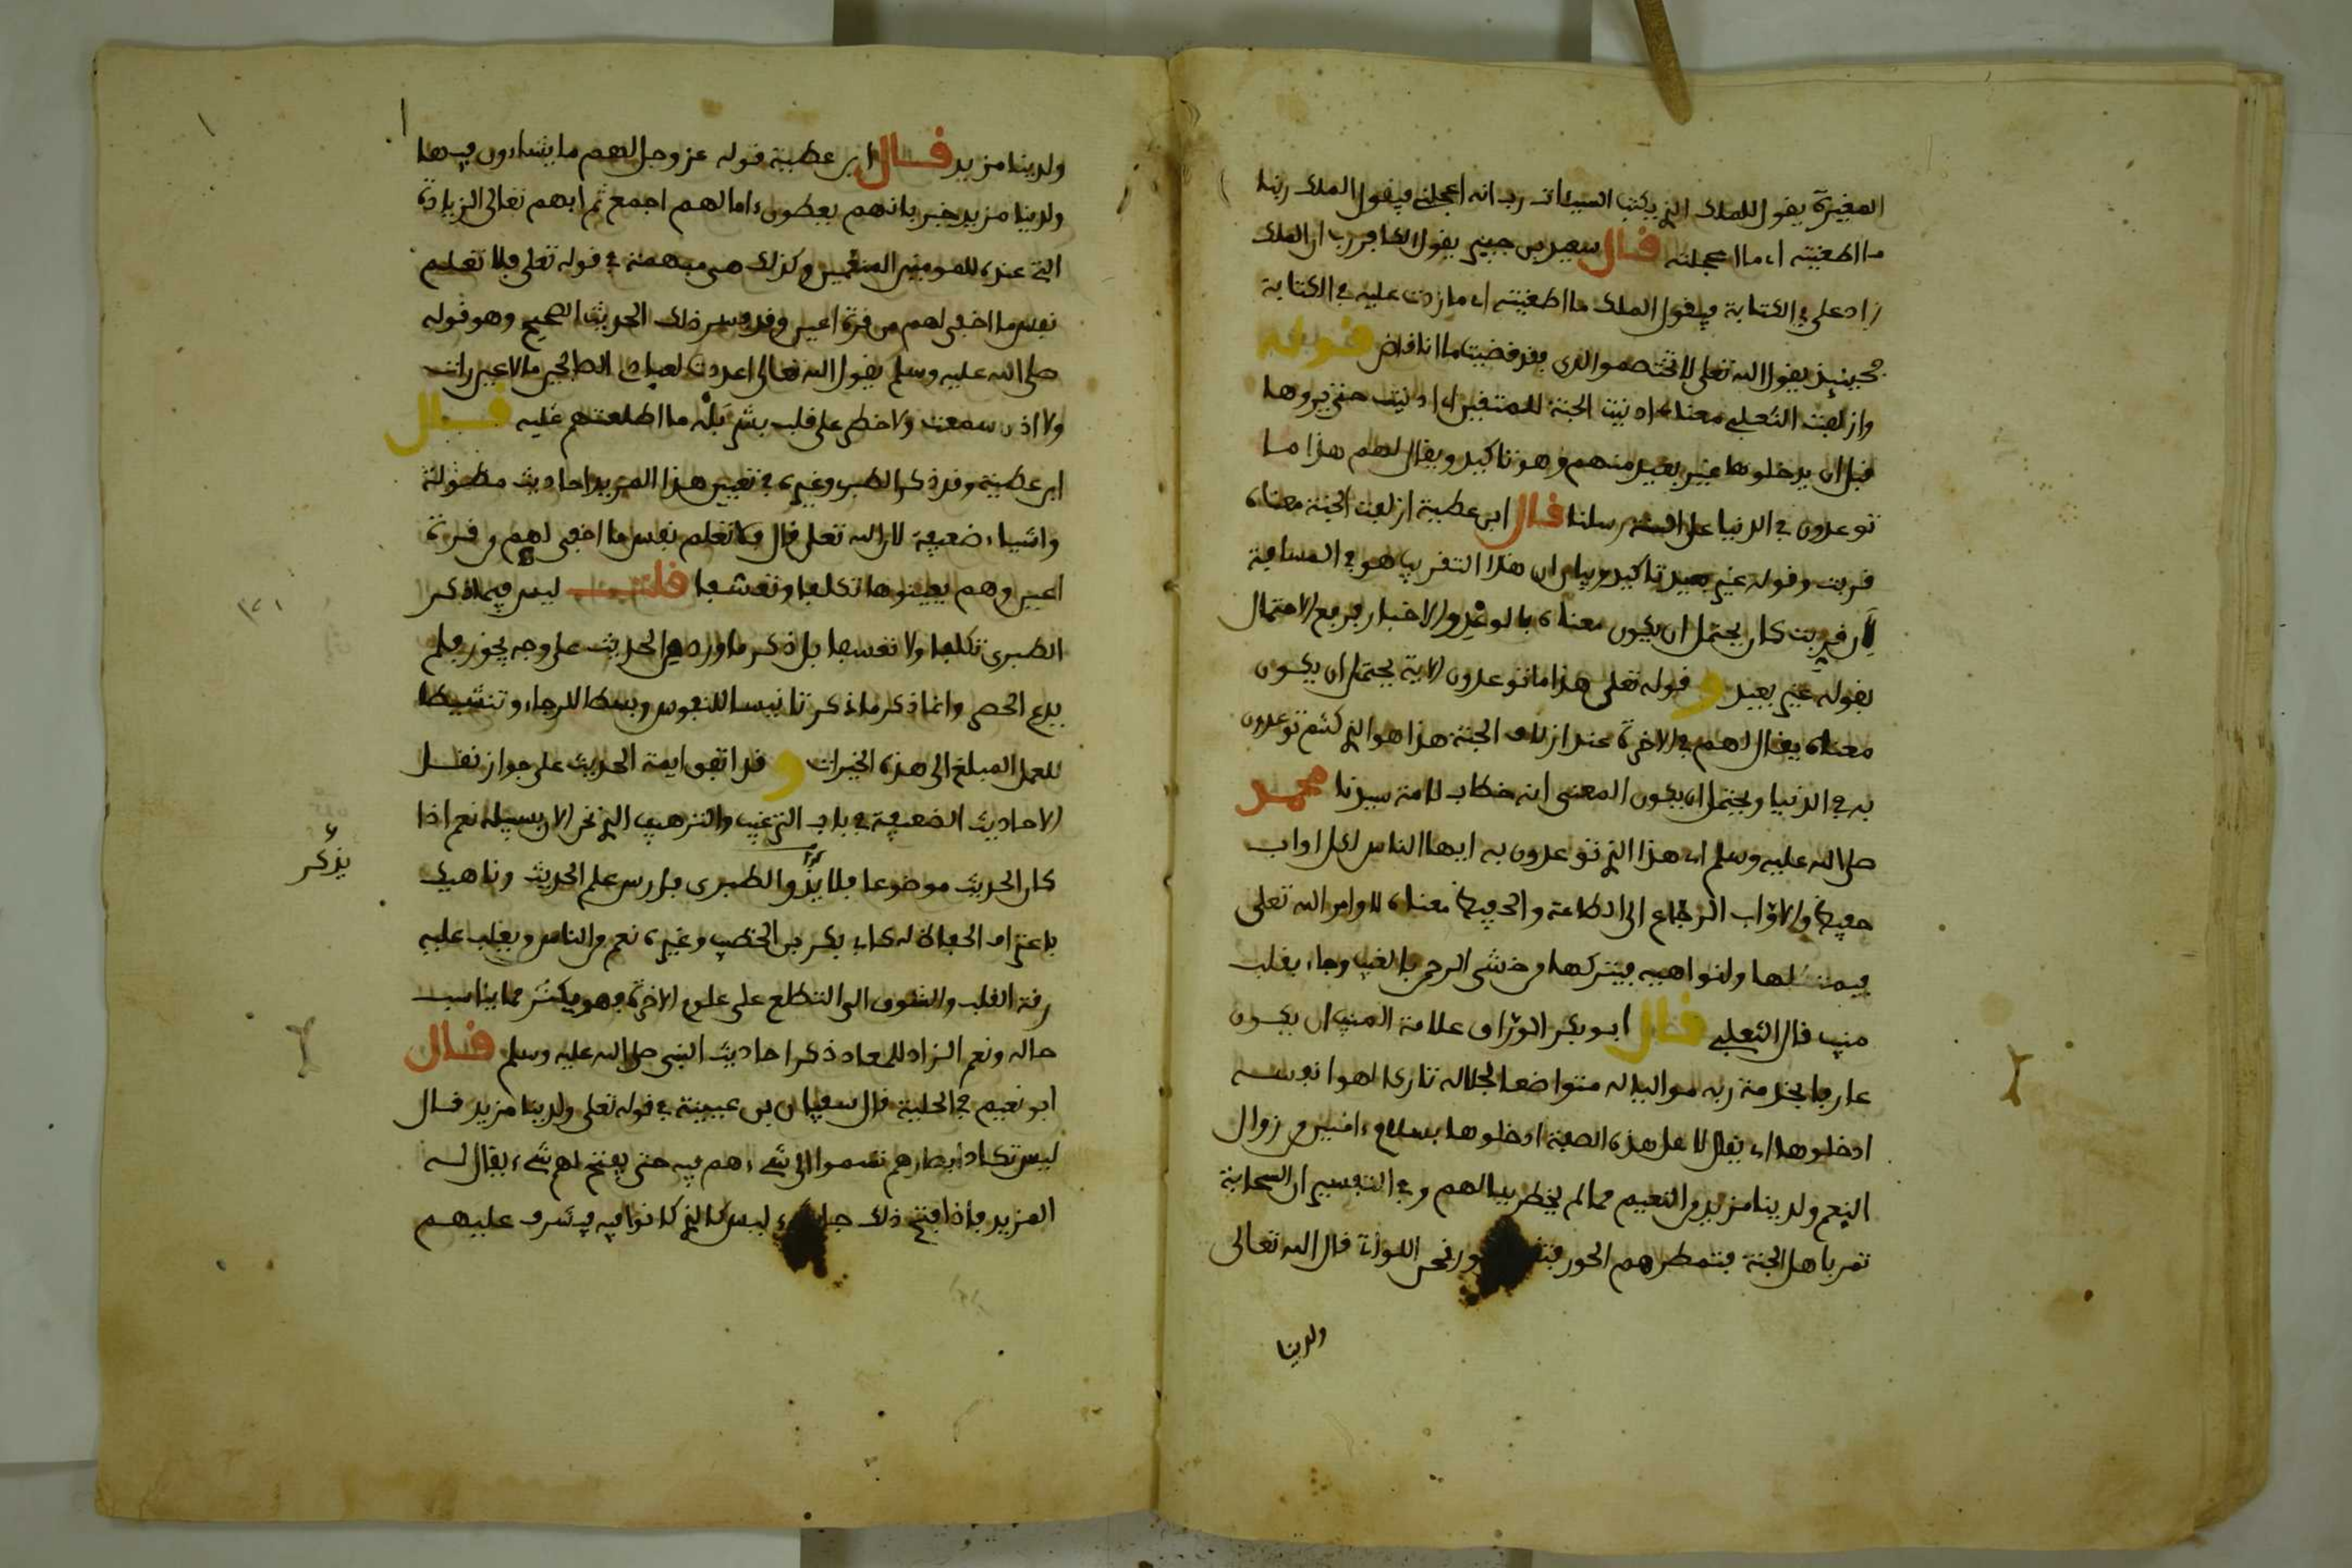 المغيرة يقول للملك الذي يكتب السيئات رب انه اعجلني فيقول الملك ربنا
ما اطغيته اي ما اعجلته قال سعيد بن جبير يقول الكافر رب ان الملك
زاد علي في الكتابة فيقول الملك ما اطغيته اي ما زدت عليه في الكتابة
فحينئذ يقول الله تعلى لا تختصموا لدي وقد قضيت ما انا قاض قوله
وازلفت الثعلبي معناه ادنيت الجنة للمتقين اي ادنيت حتى يروها
قبل ان يدخلوها غير بعيد منهم وهو تاكيد ويقال لهم هذا ما
توعدون في الدنيا على السنة رسلنا قال ابن عطية ازلفت الجنة معناه
قربت وقوله غير بعيد تاكيد وبيان ان هذا التقريب هو في المسافة
لان قربت كان يحتمل ان يكون معناه بالوعد والاخبار فرفع الاحتمال
بقوله غير بعيد و قوله تعلى هذا ما توعدون الاية يحتمل ان يكون
معناه يقال لهم في الاخرة عند ازلاف الجنة هذا هو الذي كنتم توعدون
به في الدنيا ويحتمل ان يكون المعنى انه خطاب لامة سيدنا محمد
صلى الله عليه وسلم اي هذا الذي توعدون به ايها الناس لكل اواب
حفيظ والاواب الرجاع الى الطاعة والحفيظ معناه لاوامر الله تعلى
فيمتثلها ولنواهيه فيتركها من خشي الرحمن بالغيب وجاء بقلب
منيب قال الثعلبي قال ابو بكر الوراق علامة المنيب ان يكون
عارفا بحرمة ربه مواليا له متواضعا لجلاله تاركا لهوا نفسه
ادخلوها اي يقال لاهل هذه الصفة ادخلوها بسلام ءامنين من زوال
النعم ولدينا مزيد من النعيم مما لم يخطر ببالهم وفي التفسير ان السحابة
تمر باهل الجنة فتمطرهم الحور نحن اللواتي قال الله تعالى
ولدينا
ولدينا مزيد قال ابن عطية قوله عز وجل لهم ما يشاءون فيها
ولدينا مزيد خبر بانهم يعطون ءامالهم اجمع ثم ابهم تعالى الزيادة
التي عنده للمومنين المنعمين وكذلك هي مبهمة في قوله تعلى فلا تعلم
نفس ما اخفي لهم من قرة اعين وقد فسر ذلك الحديث الصحيح وهو قوله
صلى الله عليه وسلم يقول الله تعالى اعددت لعبادي الصالحين ما لا عين رات
ولا اذن سمعت ولا خطر على قلب بشر بله ما اطلعتهم عليه قال
ابن عطية وقد ذكر الطبري وغيره في تعيين هذا المزيد احاديث مطولة
واشياء ضعيفة لان الله تعلى قال فلا تعلم نفس ما اخفي لهم من قرة
اعين وهم يعينوها تكلفا وتعسفا قلت ليس فيما ذكر
الطبري تكلفا ولا تعسفا بل ذكر ما ورد من الحديث على وجه يجوز فلم
يدع الحصر وانما ذكر ما ذكر تانيسا للنفوس وبسطا للرجاء وتنشيطا
للعمل المبلغ الى هذه الخيرات و قد اتفق ايمة الحديث على جواز نقل
الاحاديث الضعيفة في باب الترغيب والترهيب الذي نحن الان بسبيله نعم اذا
كان الحديث موضوعا فلا يذكر والطبري فارس علم الحديث وناهيك
يذكر
باعتراف الحفاظ له كابي بكر بن الخطيب وغيره نعم والناس ويغلب عليه
رقة القلب والشوق الى التطلع على علوم الاخرة فهو يكثر مما يناسب
حاله ونعم الزاد للمعاد ذكر احاديث النبي صلى الله عليه وسلم قال
ابو نعيم في الحلية قال سفيان بن عيينة في قوله تعلى ولدينا مزيد قال
ليس تكاد ابصارهم تسموا الى شيء هم فيه حتى يفتح لهم شيء يقال له
المزيد فاذا فتح ذلك ليس كالذي كانوا فيه فيشرف عليهم